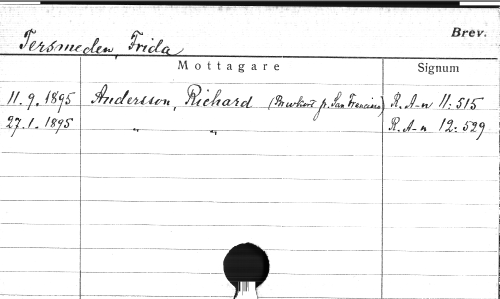 Brev.
Tersmeden, Frida
Mottagare Signum
11.9.1895 Andersson, Richard ( p. San Francisco) R.A-n 11:515
27.1.1895 " " R.A-n 12:529